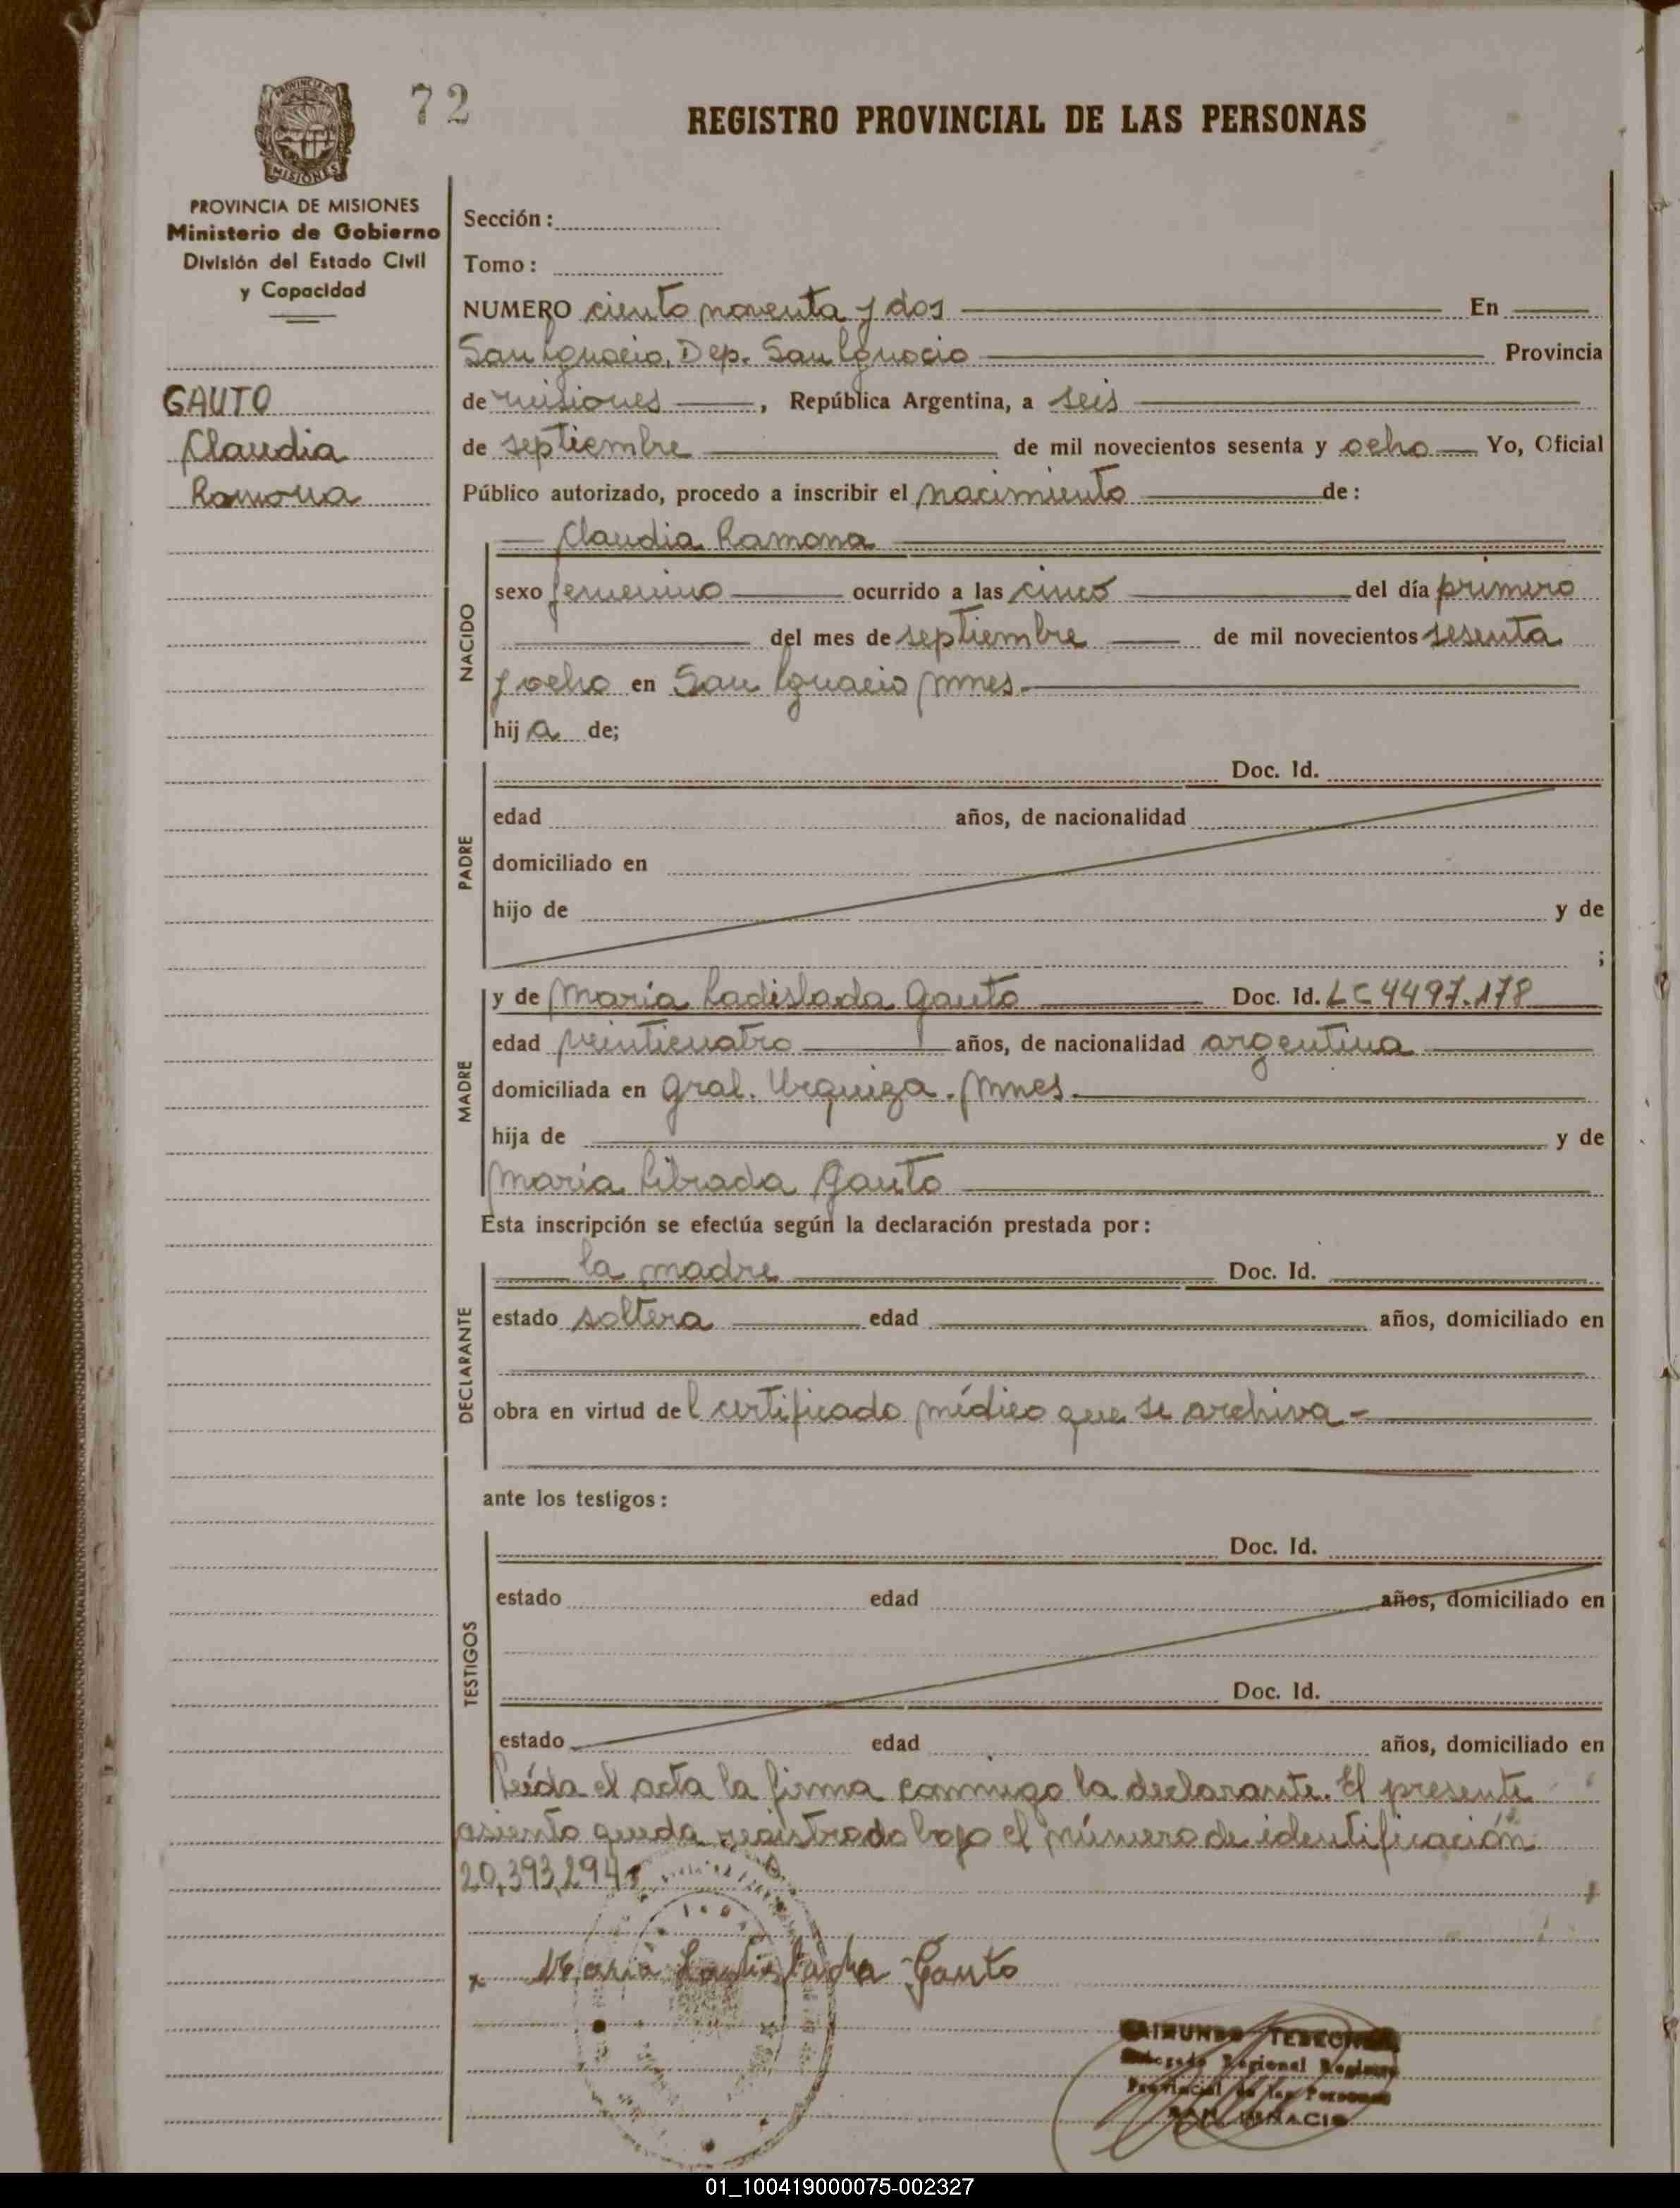 72
REGISTRO PROVINCIAL DE LAS PERSONAS
PROVINCIA DE MISIONES
Ministerio de Gobierno
División del Estado Civil
y Capacidad
GAUTO
Claudia
Ramona
Sección:
Tomo:
NUMERO ciento noventa y dos En
San Ignacio, Dep. San Ignacio Provincia
de misiones, República Argentina, a seis
de septiembre de mil novecientos sesenta y ocho Yo, Oficial
Público autorizado, procedo a inscribir el nacimiento de:
NACIDO
Claudia Ramona
sexo femenino ocurrido a las cinco del día primero
del mes de septiembre de mil novecientos sesenta
y ocho en San Ignacio mnes.
hija de;
PADRE
Doc. Id.
edad años, de nacionalidad
domiciliado en
hijo de y de
;
MADRE
y de maría Ladislada Gauto Doc. Id. LC 4497.178
edad veinticuatro años, de nacionalidad argentina
domiciliada en Gral. Urquiza. mnes.
hija de y de
maría Librada Gauto
Esta inscripción se efectúa según la declaración prestada por:
DECLARANTE
la madre Doc. Id.
estado soltera edad años, domiciliado en
obra en virtud del certificado médico que se archiva -
ante los testigos:
TESTIGOS
Doc. Id.
estado edad años, domiciliado en
Doc. Id.
estado edad años, domiciliado en
Leída el acta la firma conmigo la declarante. El presente
asiento queda registrado bajo el número de identificación
20,393,294
x María Ladislada Gauto
Regional
Provincial de las Personas
SAN IGNACIO
01_100419000075-002327